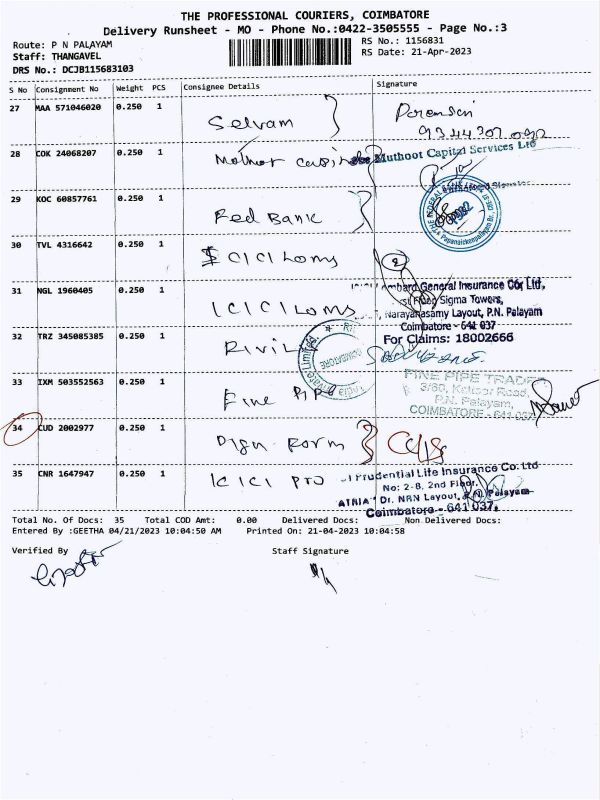 THE PROFESSIONAL COURIERS, COIMBATORE
Delivery Runsheet - MO - Phone No.:0422-3505555 - Page No.:3
Route: P N PALAYAM
RS No.: 1156831
Staff: THANGAVEL
RS Date: 21-Apr-2023
DRS No.: DCJB115683103
S No Consignment No Weight PCS Consignee Details Signature
27 MAA 571046020 0.250 1 Selvam
28 COK 24068207 0.250 1
Muthoot Capital Services Ltd
29 KOC 60857761 0.250 1 Red Bank
30 TVL 4316642 0.250 1 ICICI Loms
31 NGL 1960405 0.250 1 ICICI Loms
mbard General Insurance Co. Ltd,
Sigma Towers,
Narayanasamy Layout, P.N. Palayam
Coimbatore - 641 037
For Claims: 18002666
32 TRZ 345085385 0.250 1
33 IXM 503552563 0.250 1 Fine Pipe
FINE PIPE TRADE
3/60, Kattoor Road,
P.N. Palayam,
COIMBATORE - 641 037
34 CUD 2002977 0.250 1
35 CNR 1647947 0.250 1 ICICI Pro
Prudential Life Insurance Co. Ltd
No: 2-8, 2nd Floor,
ATRIA Dr. NRN Layout, P.N. Palayam
Coimbatore - 641 037.
Total No. Of Docs: 35 Total COD Amt: 0.00 Delivered Docs: Non Delivered Docs:
Entered By :GEETHA 04/21/2023 10:04:50 AM Printed On: 21-04-2023 10:04:58
Verified By Staff Signature